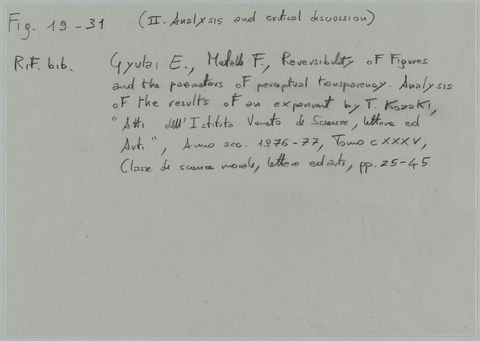 Fig. 19-31 (II. Analysis and critical discussion)
Rif. bib. Gyulai E., Metelli F., Reversibility of Figures
and the parameters of perceptual transparency. Analysis
of the results of an experiment by T. Kozaki,
"Atti dell'Istituto Veneto di Scienze, lettere ed
Arti", Anno acc. 1976-77, Tomo CXXXV,
Classe di scienze morali, lettere ed arti, pp. 25-45